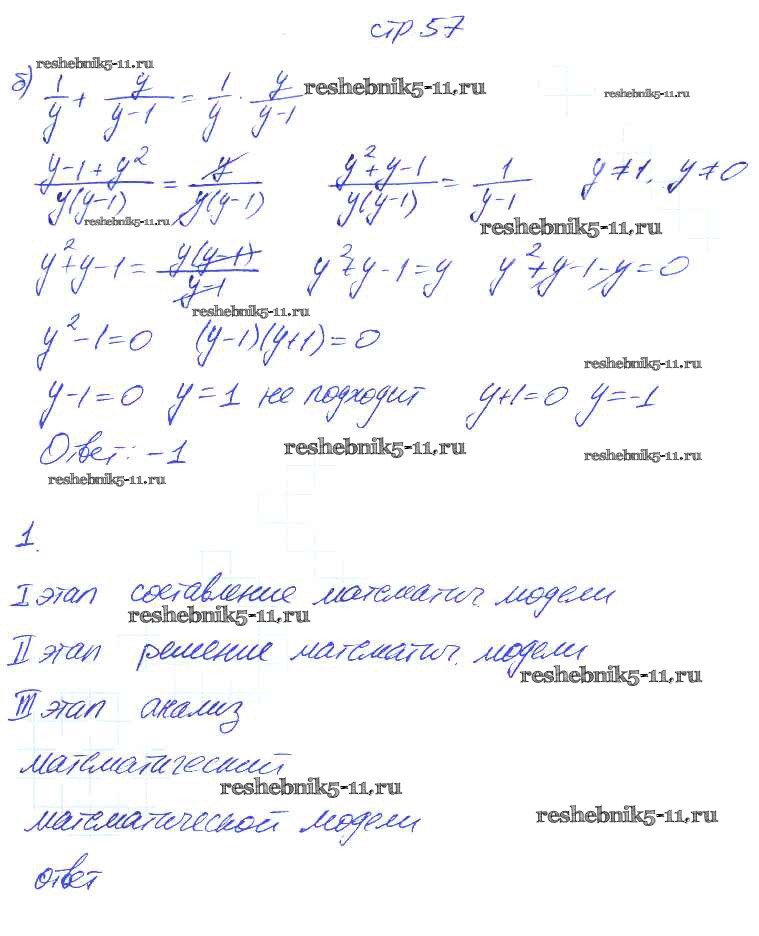 стр 57
reshebnik5-11.ru
б) 1/y + y/(y-1) = 1/y · y/(y-1) reshebnik5-11.ru reshebnik5-11.ru
(y-1+y²)/(y(y-1)) = y/(y(y-1)) (y²+y-1)/(y(y-1)) = 1/(y-1) y≠1, y≠0
reshebnik5-11.ru reshebnik5-11.ru
y²+y-1 = y(y-1)/(y-1) y²+y-1=y y²+y-1-y=0
reshebnik5-11.ru
y²-1=0 (y-1)(y+1)=0
reshebnik5-11.ru
y-1=0 y=1 не подходит y+1=0 y=-1
Ответ: -1 reshebnik5-11.ru reshebnik5-11.ru
reshebnik5-11.ru
1.
I этап составление математич. модели
reshebnik5-11.ru
II этап решение математич. модели
reshebnik5-11.ru
III этап анализ
математический
reshebnik5-11.ru
математической модели reshebnik5-11.ru
ответ